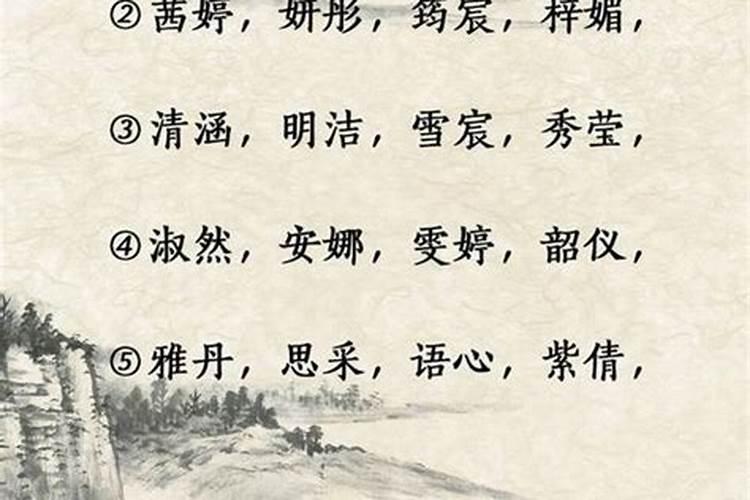 ②茜婷，妍彤，筠宸，梓媚，
③清涵，明洁，雪宸，秀莹，
④淑然，安娜，雯婷，韶仪，
⑤雅丹，思采，语心，紫倩，